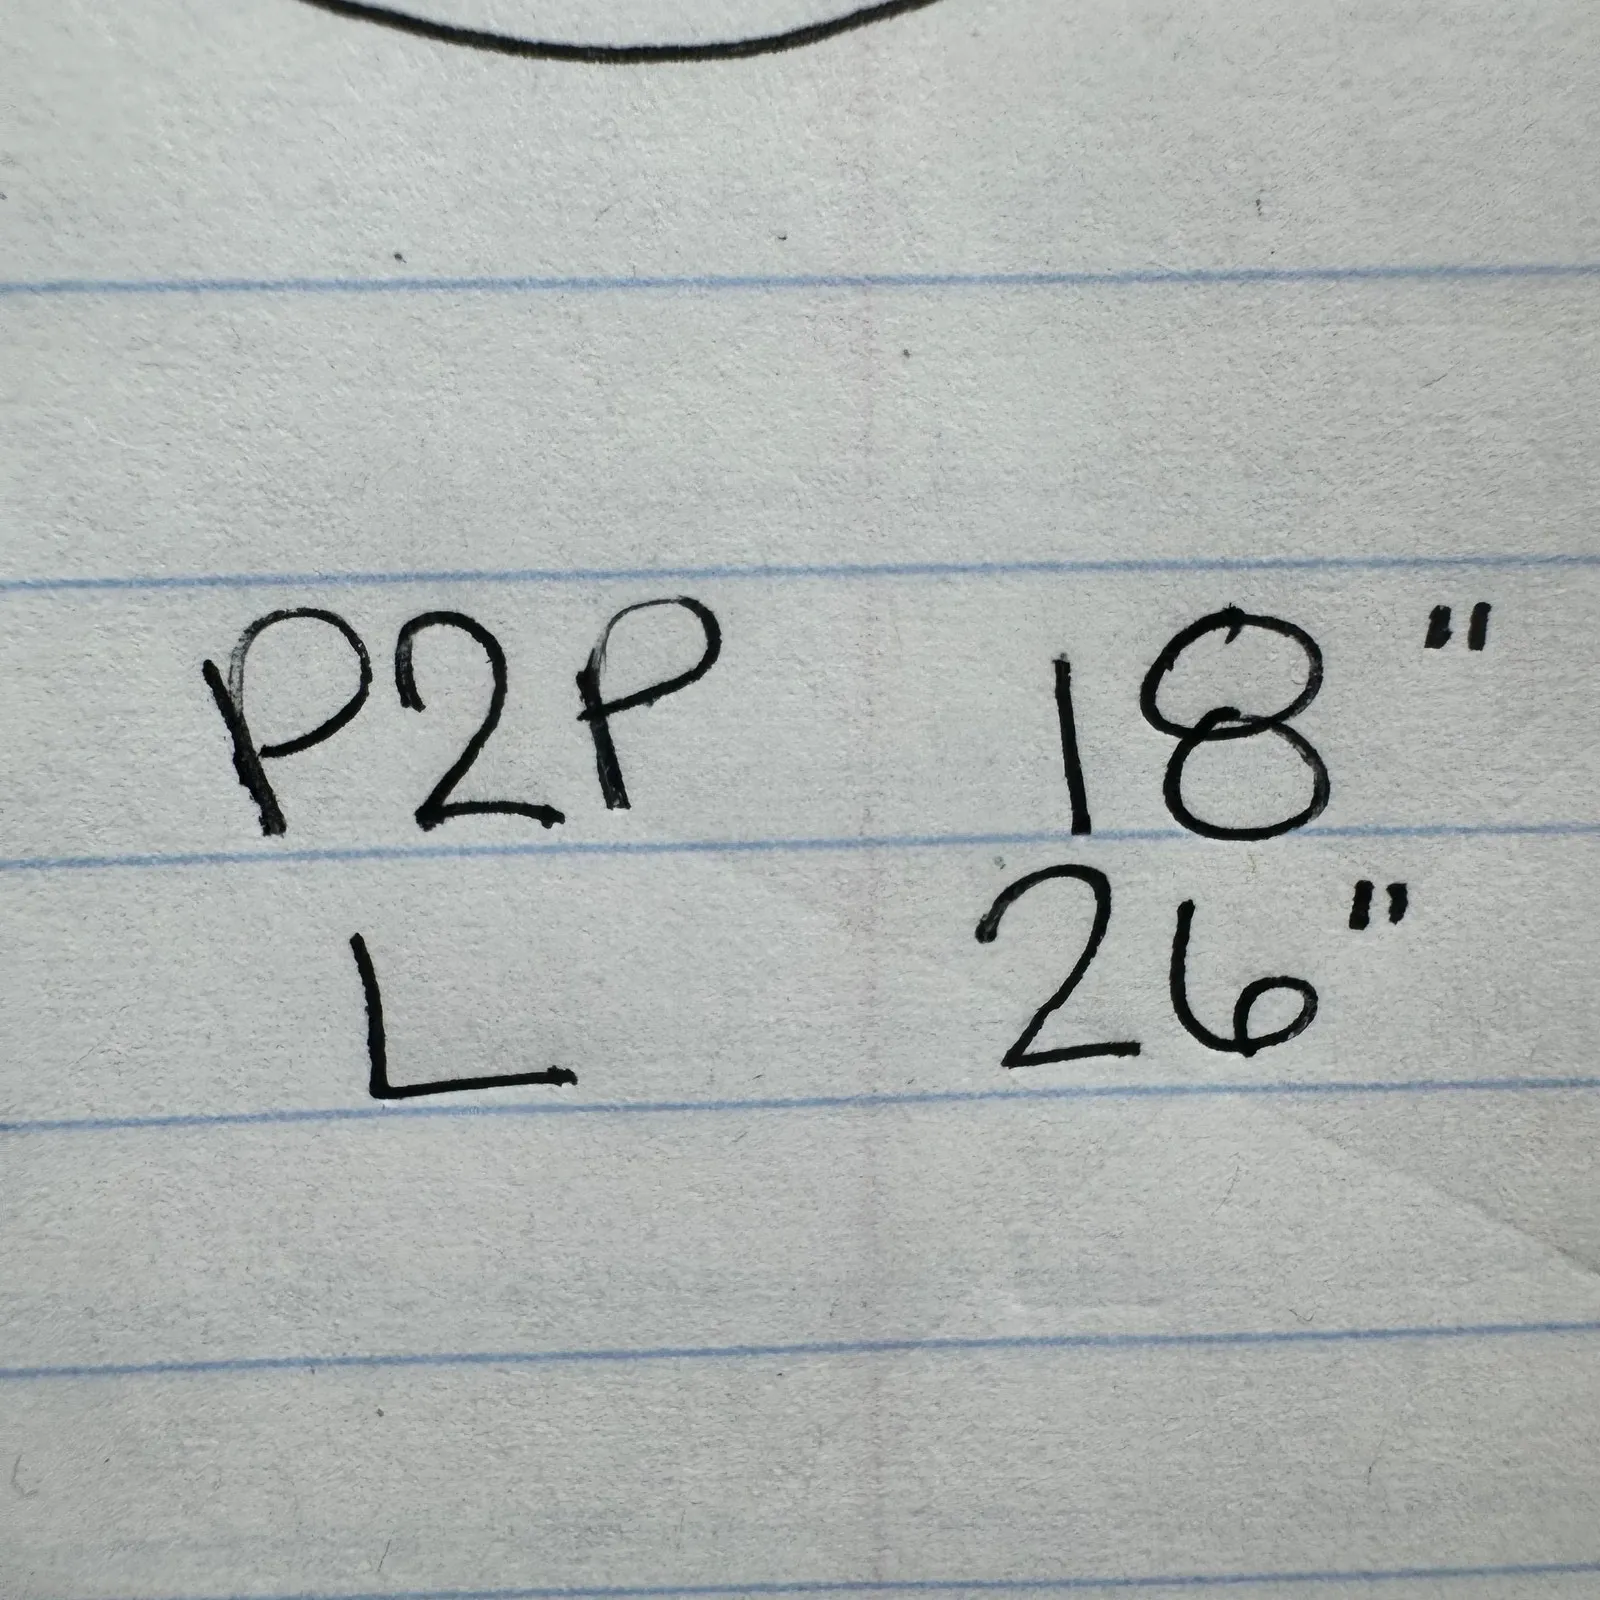 P2P 18"
L 26"